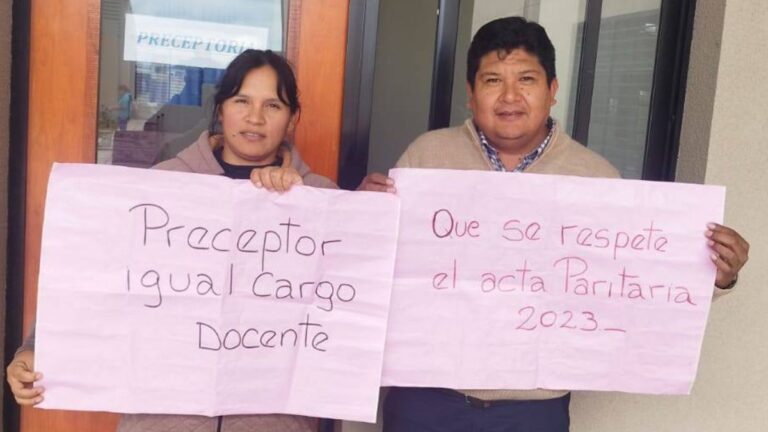 PRECEPTORIA
Preceptor
igual Cargo
Docente
Que se respete
el acta Paritaria
2023_